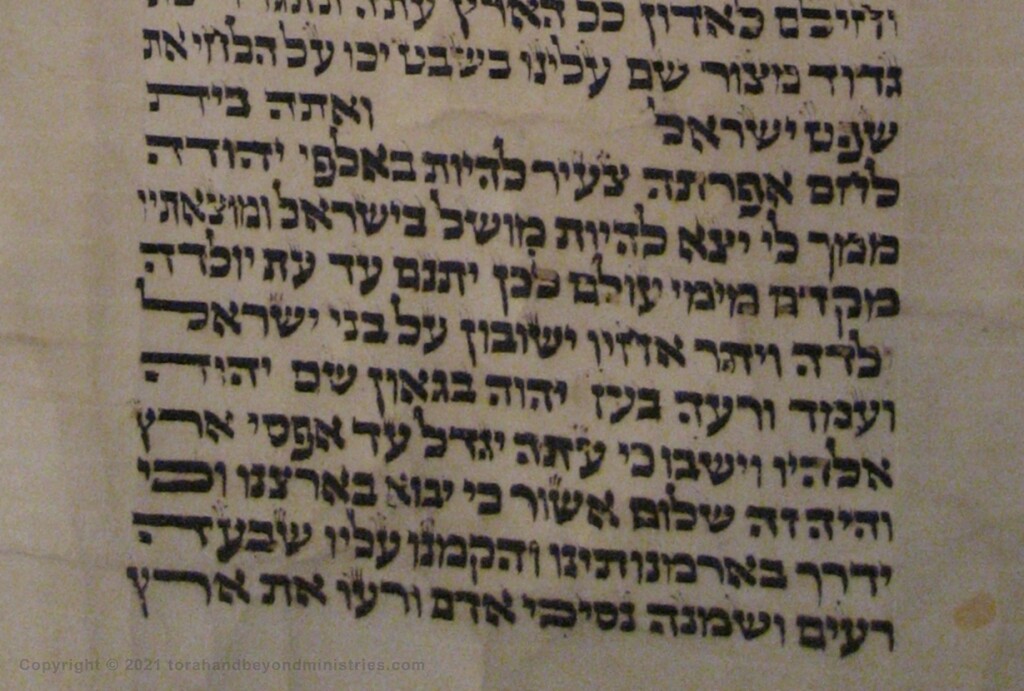 וחילם לאדון כל הארץ עתה
גדוד מצור שם עלינו בשבט יכו על הלחי את
שפט ישראל ואתה בית
לחם אפרתה צעיר להיות באלפי יהודה
ממך לי יצא להיות מושל בישראל ומוצאתיו
מקדם מימי עולם לכן יתנם עד עת יולדה
לדה ויתר אחיו ישובון על בני ישראל
ועמד ורעה בעז יהוה בגאון שם יהוה
אלהיו וישבו כי עתה יגדל עד אפסי ארץ
והיה זה שלום אשור כי יבוא בארצנו וכי
ידרך בארמנותינו והקמנו עליו שבעה
רעים ושמנה נסיכי אדם ורעו את ארץ
Copyright © 2021 torahandbeyondministries.com